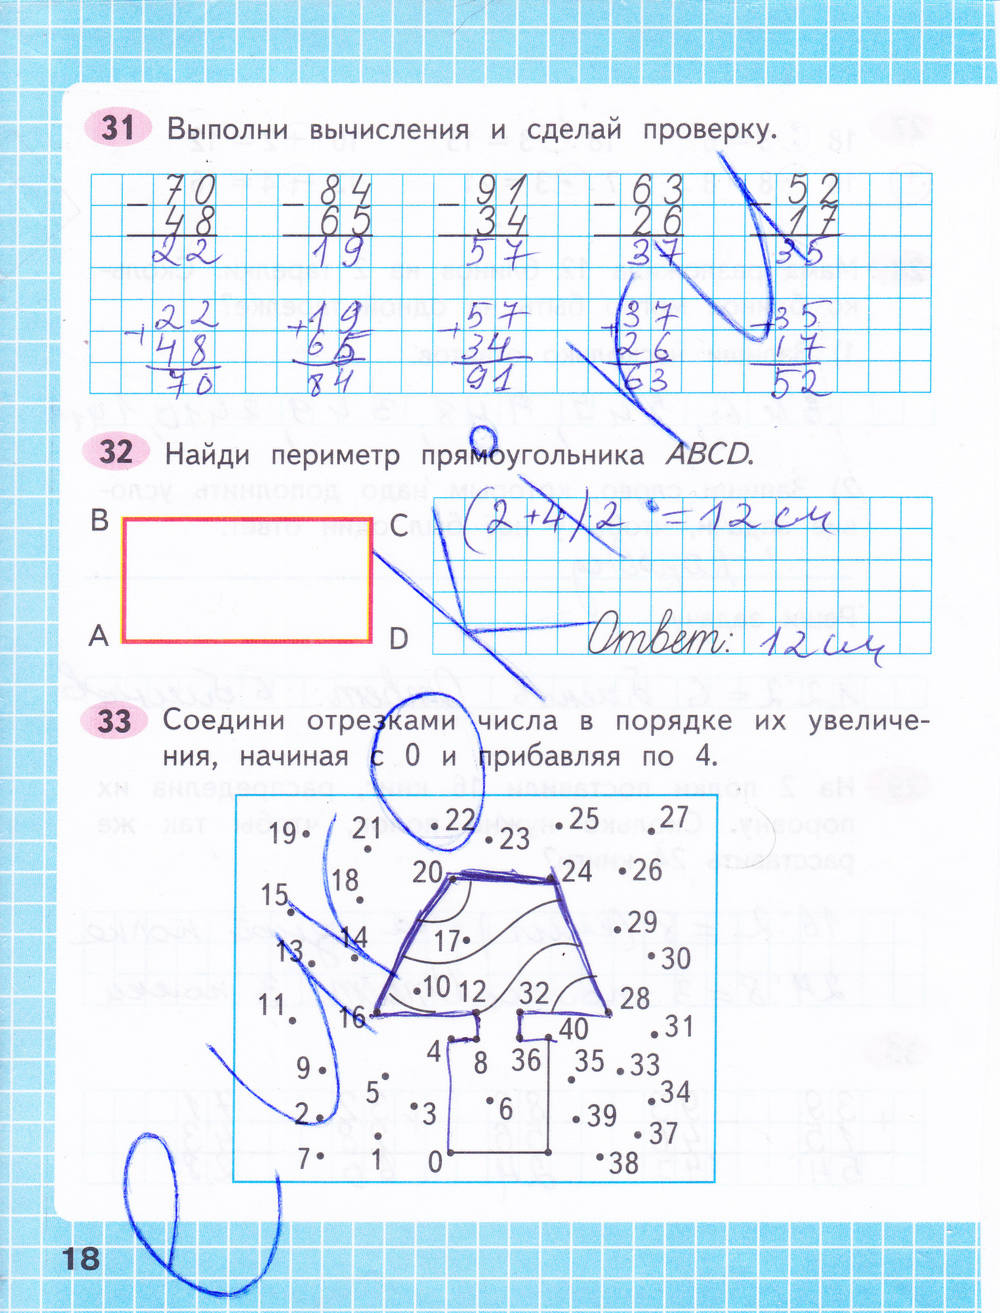 31 Выполни вычисления и сделай проверку.
− 70 − 84 − 91 − 63 − 52
48 65 34 26 17
22 19 57 37 35
+ 22 + 19 + 57 + 37 + 35
48 65 34 26 17
70 84 91 63 52
32 Найди периметр прямоугольника ABCD.
B C
(2+4)2=12 см
A D
Ответ: 12 см
33 Соедини отрезками числа в порядке их увеличе-
ния, начиная с 0 и прибавляя по 4.
19 21 22 23 25 27
20 24 26
15 18
13 14 17 29
30
11 16 10 12 32 28
4 8 36 40 31
9 5 35 33
2 3 6 39 34
7 1 0 38 37
18